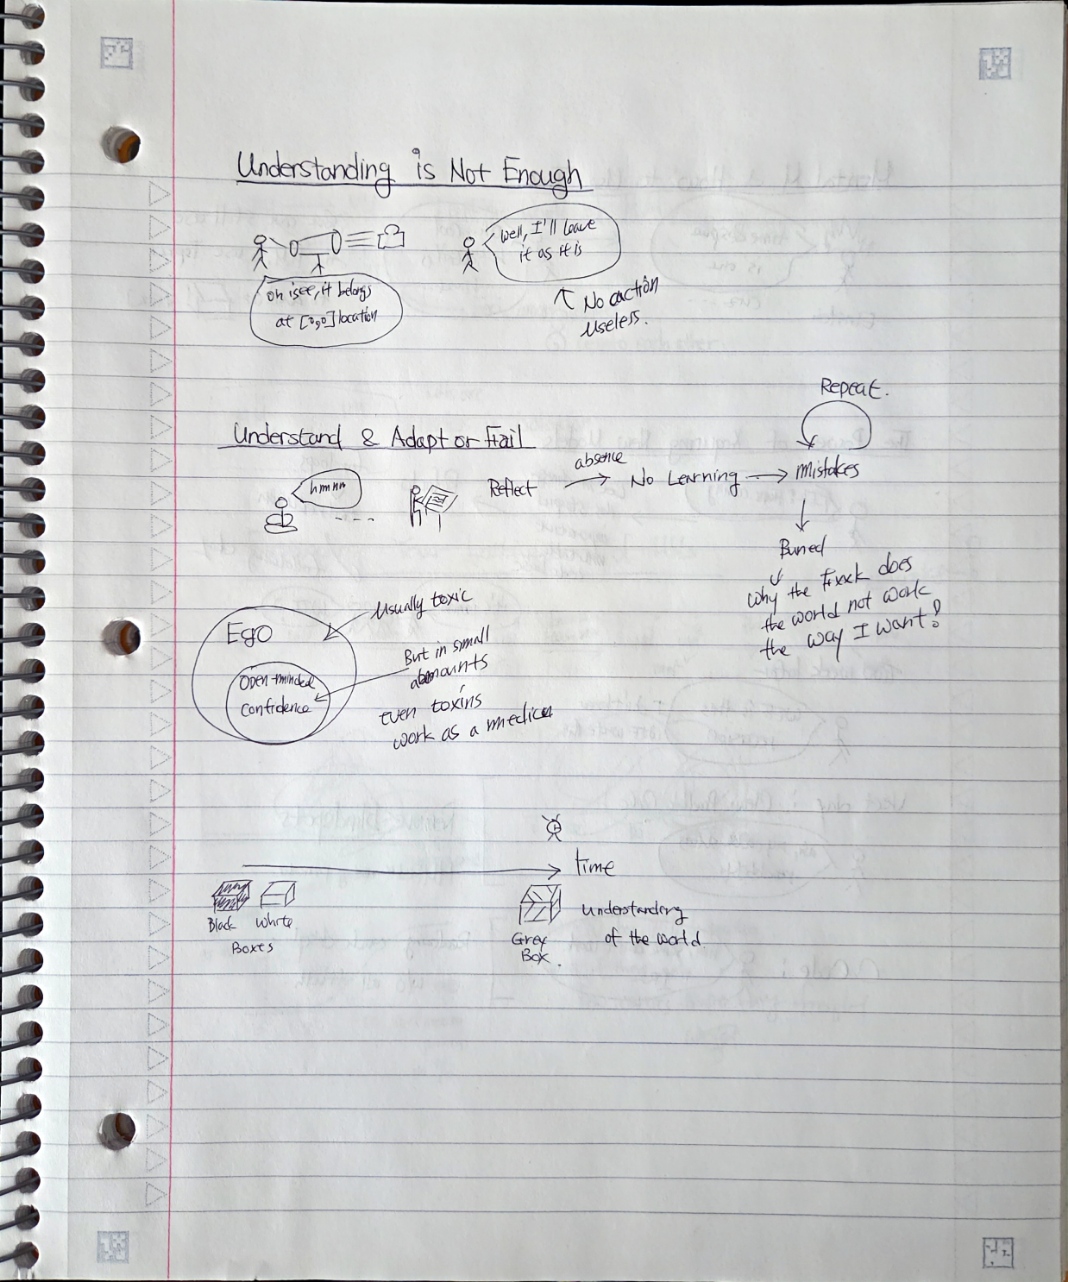 Understanding is Not Enough
oh i see, it belongs
at [°g°] location
well, I'll leave
it as it is
No action
Useless.
Understand & Adapt or Fail
hmnn
Reflect
absence
No Learning
mistakes
Repeat.
Buried
why the Fxxck does
the world not work
the way I want?
Ego
Open-minded
Confidence
Usually toxic
But in small
amounts
even toxins
work as a medicine
time
Black
White
Boxes
Grey
Box.
Understanding
of the world